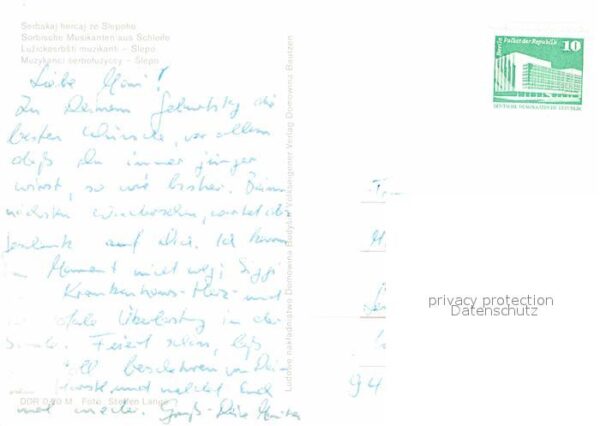 Serbskaj hercaj ze Slepoho
Sorbische Musikanten aus Schleife
Lužickosrbští muzikanti – Slepo
Muzykanci serbołużyccy – Slepo
Liebe Moni!
Zu Deinem Geburtstag die
besten Wünsche, vor allem
daß Du immer jünger
wirst, so wie bisher. Beim
nächsten Wiedersehen, wartet das
Geschenk auf Dich. Ich kann
im Moment nicht weg, Siggi
Krankenhaus-Herz- und
totale Überlastung in der
Schule. Feiert schön, laß
Dich toll bescheren von Deinem
Horst und macht Euch
mal wieder. Gruß - Deine
DDR 0,20 M Foto: Steffen Lange
Ludowe nakładnistwo Domowina Budyšin Volkseigener Verlag Domowina Bautzen
Berlin, Palast der Republik 10
DEUTSCHE DEMOKRATISCHE REPUBLIK
94
privacy protection
Datenschutz